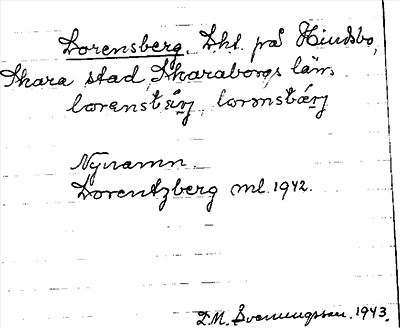 Lorensberg. Lht. på Hindsbo,
Skara stad, Skaraborgs län,
lorenstærj, lorənstærj
Nynamn.
Lorentzberg ml. 1942.
D.M. Svenungsson. 1943.